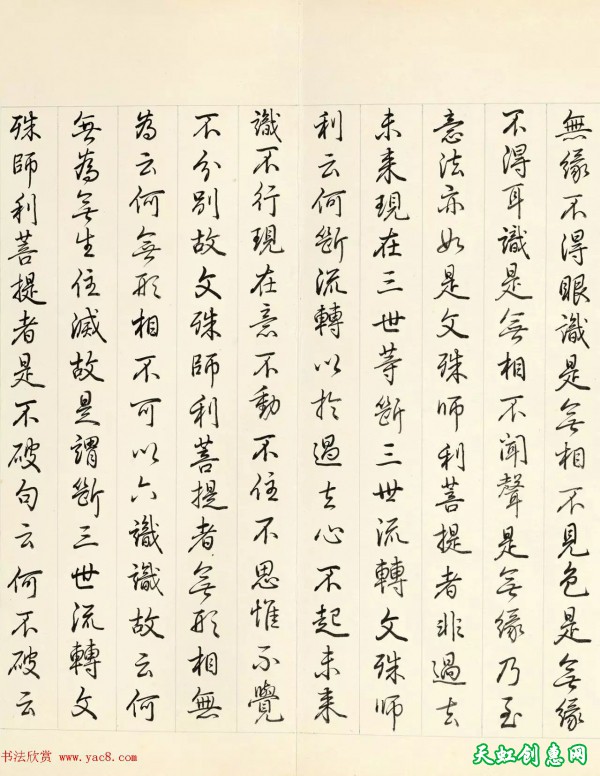 無緣不得眼識是無相不見色是無緣
不得耳識是無相不聞聲是無緣乃至
意法亦如是文殊師利菩提者非過去
未來現在三世等斷三世流轉文殊師
利云何斷流轉以於過去心不起未來
識不行現在意不動不住不思惟不覺
不分別故文殊師利菩提者無形相無
為云何無形相不可以六識識故云何
無為無生住滅故是謂斷三世流轉文
殊師利菩提者是不破句云何不破云
书法欣赏 www.yac8.com
天虹创惠网